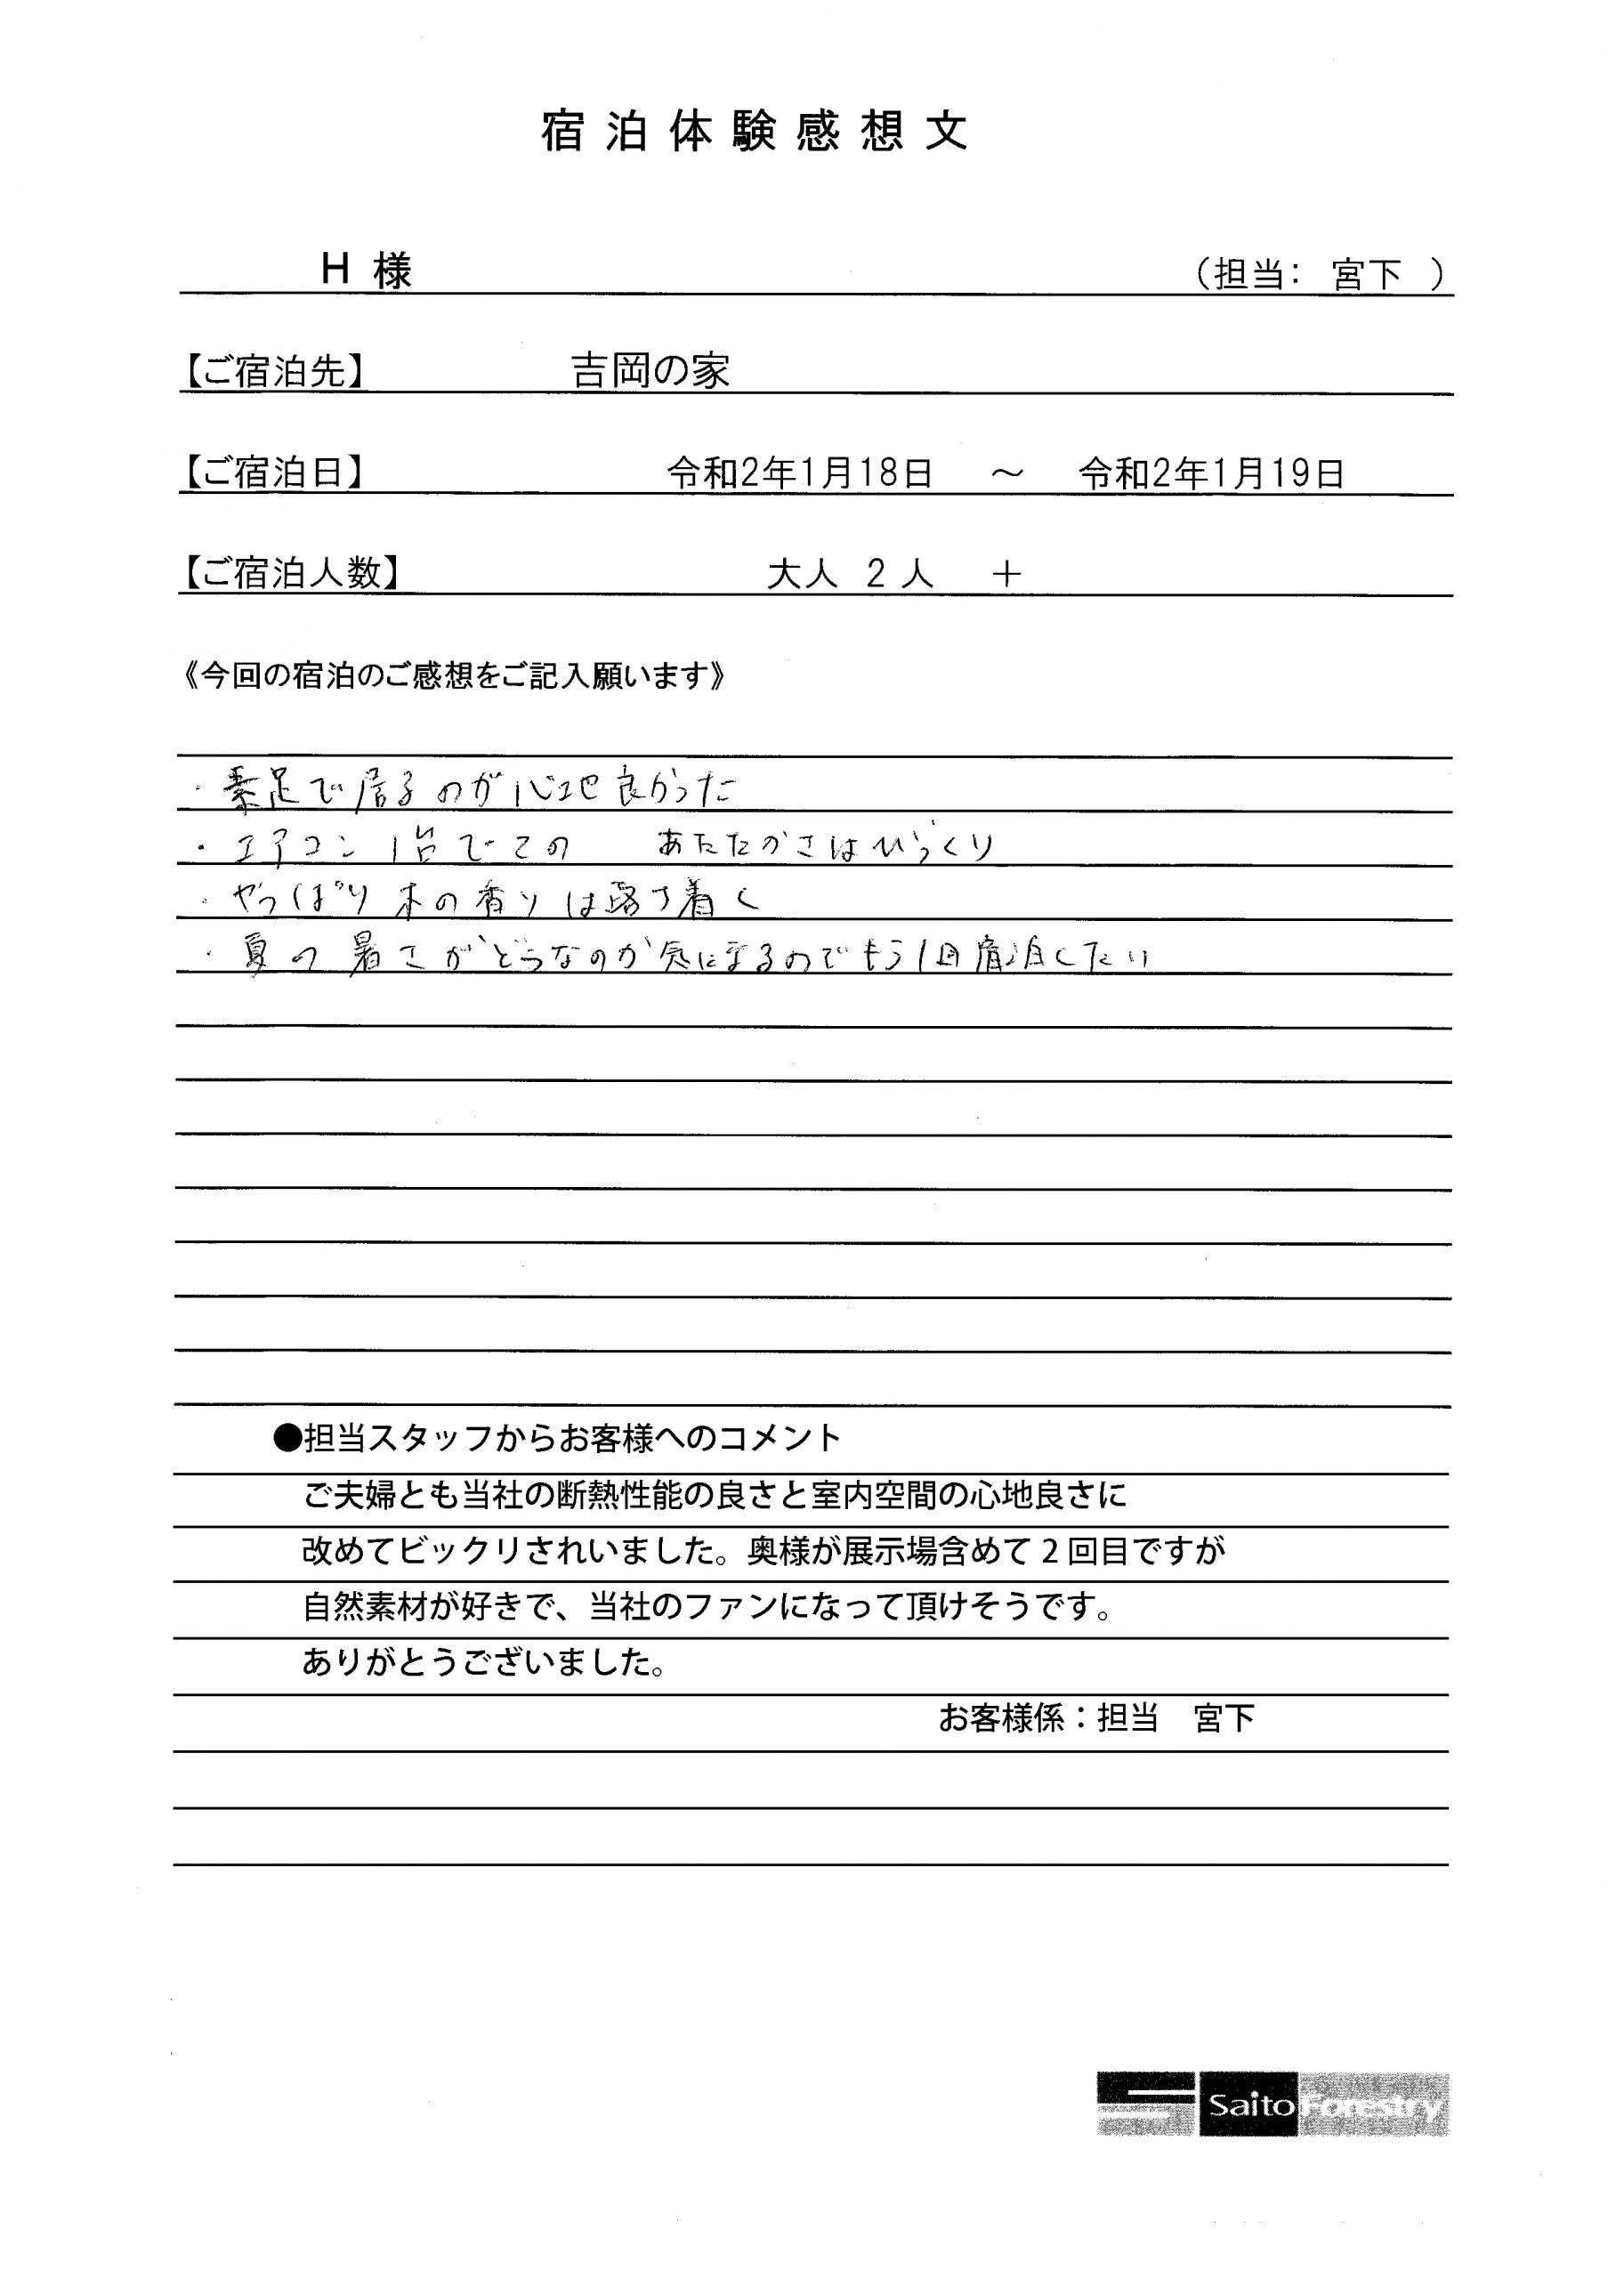 宿泊体験感想文
H 様 （担当： 宮下 ）
【ご宿泊先】 吉岡の家
【ご宿泊日】 令和2年1月18日 ～ 令和2年1月19日
【ご宿泊人数】 大人 2 人 ＋
《今回の宿泊のご感想をご記入願います》
・素足で居るのが心地良かった
・エアコン1台でこの あたたかさはびっくり
・やっぱり木の香りは落ち着く
・夏の暑さがどうなのか気になるのでもう1回宿泊したい
●担当スタッフからお客様へのコメント
ご夫婦とも当社の断熱性能の良さと室内空間の心地良さに
改めてビックリされいました。奥様が展示場含めて２回目ですが
自然素材が好きで、当社のファンになって頂けそうです。
ありがとうございました。
お客様係：担当　宮下
Saito Forestry